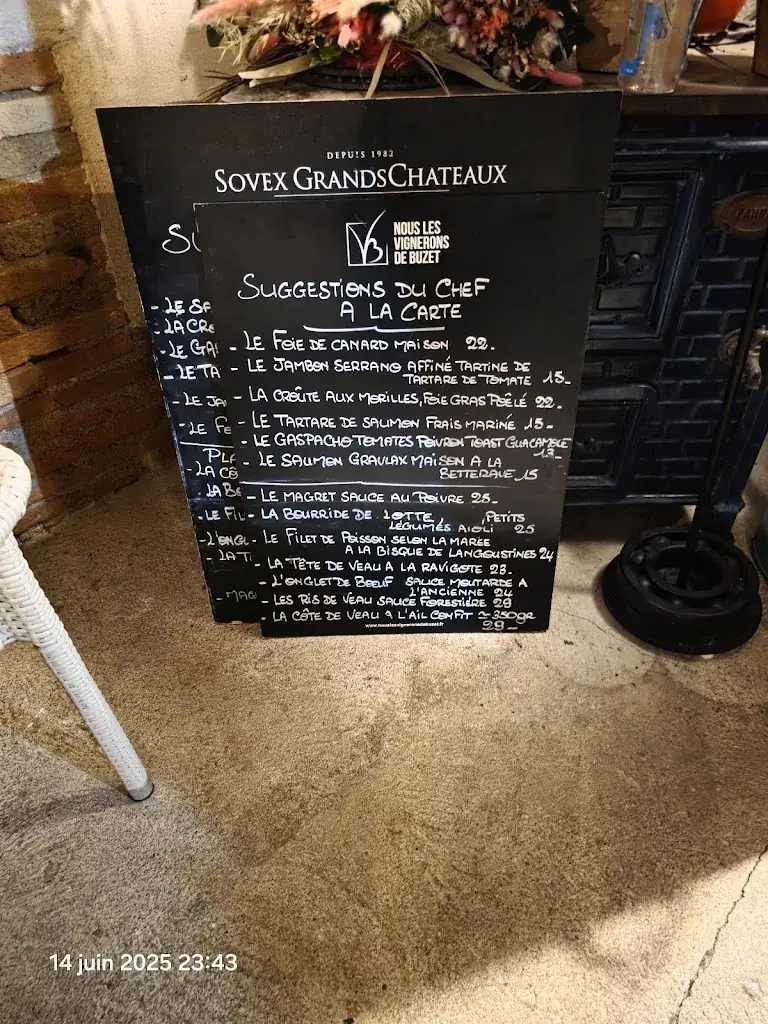 DEPUIS 1982
SOVEX GRANDSCHATEAUX
NOUS LES
VIGNERONS
DE BUZET
SUGGESTIONS DU CHEF
A LA CARTE
- LE FOIE DE CANARD MAISON 22.
- LE JAMBON SERRANO AFFINÉ TARTINE DE
TARTARE DE TOMATE 15-
- LA CROÛTE AUX MORILLES, FOIE GRAS POÊLÉ 22-
- LE TARTARE DE SAUMON FRAIS MARINÉ 15-
- LE GASPACHO TOMATES POIVRON TOAST GUACAMOLE
13-
- LE SAUMON GRAVLAX MAISON A LA
BETTERAVE 15
- LE MAGRET SAUCE AU POIVRE 25-
- LA BOURRIDE DE LOTTE, PETITS
LÉGUMES AIOLI 25
- LE FILET DE POISSON SELON LA MARÉE
A LA BISQUE DE LANGOUSTINES 24
- LA TÊTE DE VEAU A LA RAVIGOTE 23-
- L'ONGLET DE BOEUF SAUCE MOUTARDE A
L'ANCIENNE 24
- LES RIS DE VEAU SAUCE FORESTIÈRE 29
- LA CÔTE DE VEAU A L'AIL CONFIT ~350gr
29-
www.nouslesvigneronsdebuzet.fr
14 juin 2025 23:43